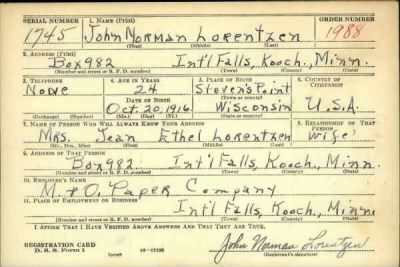 SERIAL NUMBER 1. NAME (Print) ORDER NUMBER
1745 John Norman Lorentzen 1988
(First) (Middle) (Last)
2. ADDRESS (Print)
Box 982 Int'l Falls, Kooch, Minn.
(Number and street or R. F. D. number) (Town) (County) (State)
3. TELEPHONE 4. AGE IN YEARS 5. PLACE OF BIRTH 6. COUNTRY OF CITIZENSHIP
None 24 Steven's Point
DATE OF BIRTH (Town or county)
Oct. 20, 1916. Wisconsin U.S.A.
(Exchange) (Number) (Mo.) (Day) (Yr.) (State or country)
7. NAME OF PERSON WHO WILL ALWAYS KNOW YOUR ADDRESS 8. RELATIONSHIP OF THAT PERSON
Mrs. Jean Ethel Lorentzen Wife
(Mr., Mrs., Miss) (First) (Middle) (Last)
9. ADDRESS OF THAT PERSON
Box 982. Int'l Falls, Kooch, Minn.
(Number and street or R. F. D. number) (Town) (County) (State)
10. EMPLOYER'S NAME
M. & O. Paper Company
11. PLACE OF EMPLOYMENT OR BUSINESS
Int'l Falls, Kooch, Minn.
(Number and street or R. F. D. number) (Town) (County) (State)
I AFFIRM THAT I HAVE VERIFIED ABOVE ANSWERS AND THAT THEY ARE TRUE.
REGISTRATION CARD
D. S. S. Form 1 John Norman Lorentzen
(Registrant's signature)